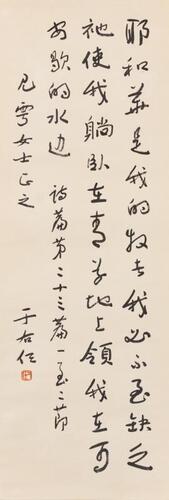 耶和華是我的牧者我必不至缺乏
祂使我躺臥在青草地上領我在可
安歇的水边 詩篇第二十三篇一至二節
雩女士正之 于右任